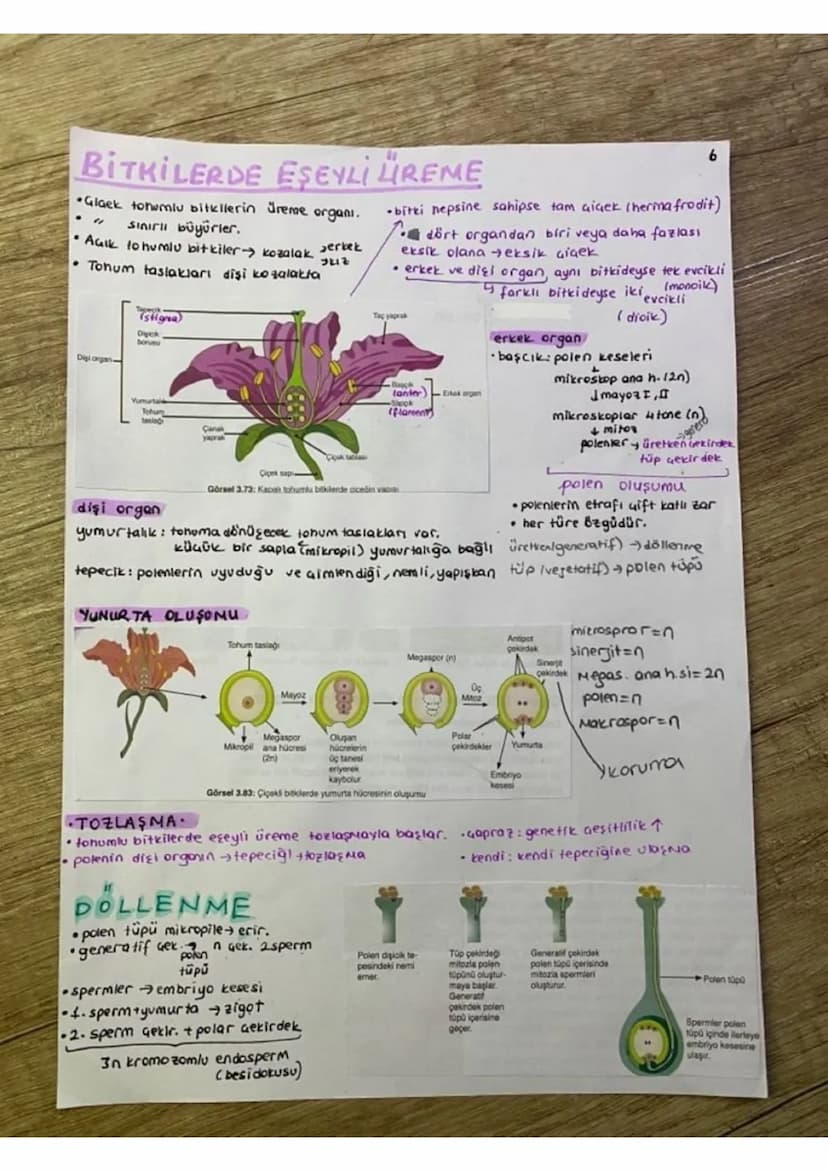 6
BİTKİLERDE EŞEYLİ ÜREME
• Çiçek tohumlu bitkilerin üreme organı.
• " sınırlı büyürler.
• Açık tohumlu bitkiler → kozalak → erkek
→ dişi
• Tohum taslakları dişi kozalakta
• bitki hepsine sahipse tam çiçek (hermafrodit)
• dört organdan biri veya daha fazlası
eksik olana → eksik çiçek
• erkek ve dişi organ, aynı bitkideyse tek evcikli
(monoik)
↳ farklı bitkideyse iki evcikli
(dioik)
Tepecik
(stigma)
Dişicik
borusu
Dişi organ
Yumurtalık
Tohum
taslağı
Çanak
yaprak
Çiçek sapı
Çiçek tablası
Taç yaprak
Başçık
(anter)
Sapçık
(filament)
Erkek organ
Görsel 3.73: Kapalı tohumlu bitkilerde çiçeğin yapısı
erkek organ
• başçık: polen keseleri
↓
mikroskop ana h. (2n)
↓ mayoz I, II
mikroskoplar 4 tane (n)
↓ mitoz
polenler → üretken çekirdek
tüp çekirdek
polen oluşumu
• polenlerin etrafı çift katlı zar
• her türe özgüdür.
üretken(generatif) → döllenme
tüp (vejetatif) → polen tüpü
dişi organ
yumurtalık: tohuma dönüşecek tohum taslakları var.
küçük bir sapla (mikropil) yumurtalığa bağlı
tepecik: polenlerin uyuduğu ve çimlendiği, nemli, yapışkan
YUNURTA OLUŞONU
Tohum taslağı
Mayoz
Mikropil
Megaspor
ana hücresi
(2n)
Oluşan
hücrelerin
üç tanesi
eriyerek
kaybolur.
Megaspor (n)
Üç
Mitoz
Antipot
çekirdek
Sinerjit
çekirdek
Polar
çekirdekler
Yumurta
Embriyo
kesesi
Görsel 3.83: Çiçekli bitkilerde yumurta hücresinin oluşumu
mitrospror = n
sinerjit = n
Megas. ana h.si = 2n
polen = n
Makrospor = n
koruma
• TOZLAŞMA •
• tohumlu bitkilerde eşeyli üreme tozlaşmayla başlar.
• polenin dişi organın → tepeciği → tozlaşma
• çapraz: genetik çeşitlilik ↑
• kendi: kendi tepeciğine ulaşma
DÖLLENME
• polen tüpü mikropile → erir.
• generatif çek. → n çek. 2 sperm
polen
tüpü
• spermler → embriyo kesesi
• 1. sperm + yumurta → zigot
• 2. sperm çekir. + polar çekirdek
3n kromozomlu endosperm
(besidokusu)
Polen dişicik te-
pesindeki nemi
emer.
Tüp çekirdeği
mitozla polen
tüpünü oluştur-
maya başlar.
Generatif
çekirdek polen
tüpü içerisine
geçer.
Generatif çekirdek
polen tüpü içerisinde
mitozla spermleri
oluşturur.
Polen tüpü
Spermler polen
tüpü içinde ilerleyerek
embriyo kesesine
ulaşır.